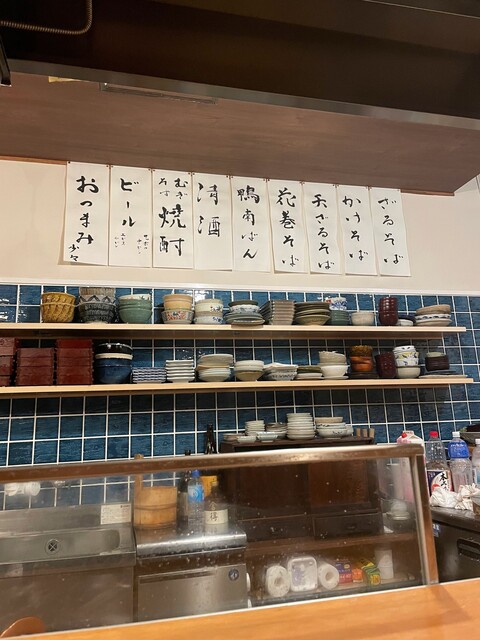 ざるそば
かけそば
天ざるそば
花巻そば
鴨南ばん
清酒
むぎ
そば
焼酎
ビール
おつまみ
少々